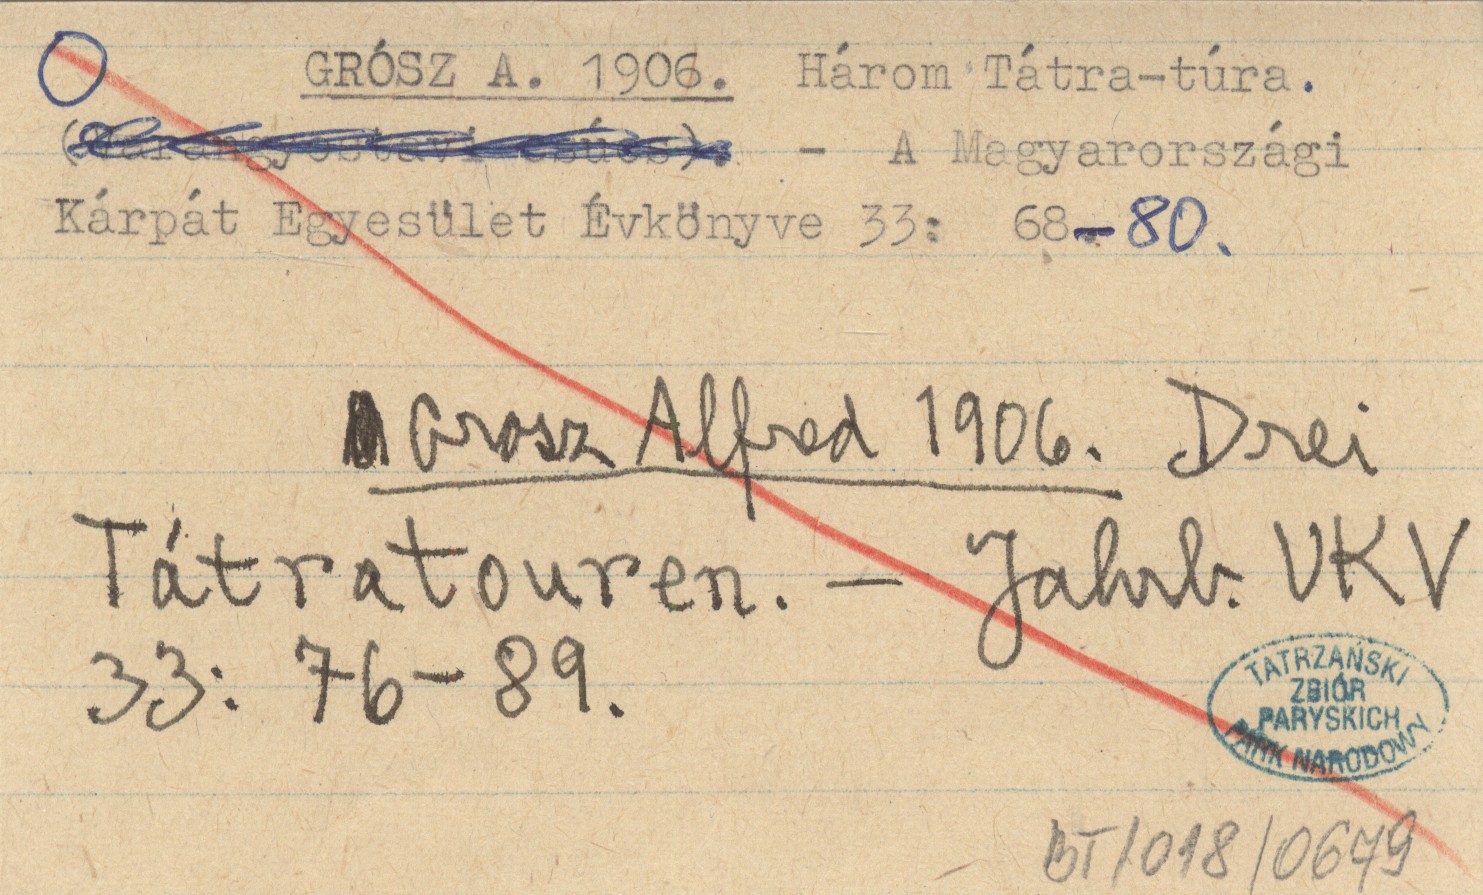 GRÓSZ A. 1906. Három Tátra-túra.
- A Magyarországi
Kárpát Egyesület Évkönyve 33: 68-80.
Grosz Alfred 1906. Drei
Tátratouren. - Jahrb. UKV
33: 76-89.
TATRZAŃSKI
ZBIÓR
PARYSKICH
PARK NARODOWY
BT/018/0679